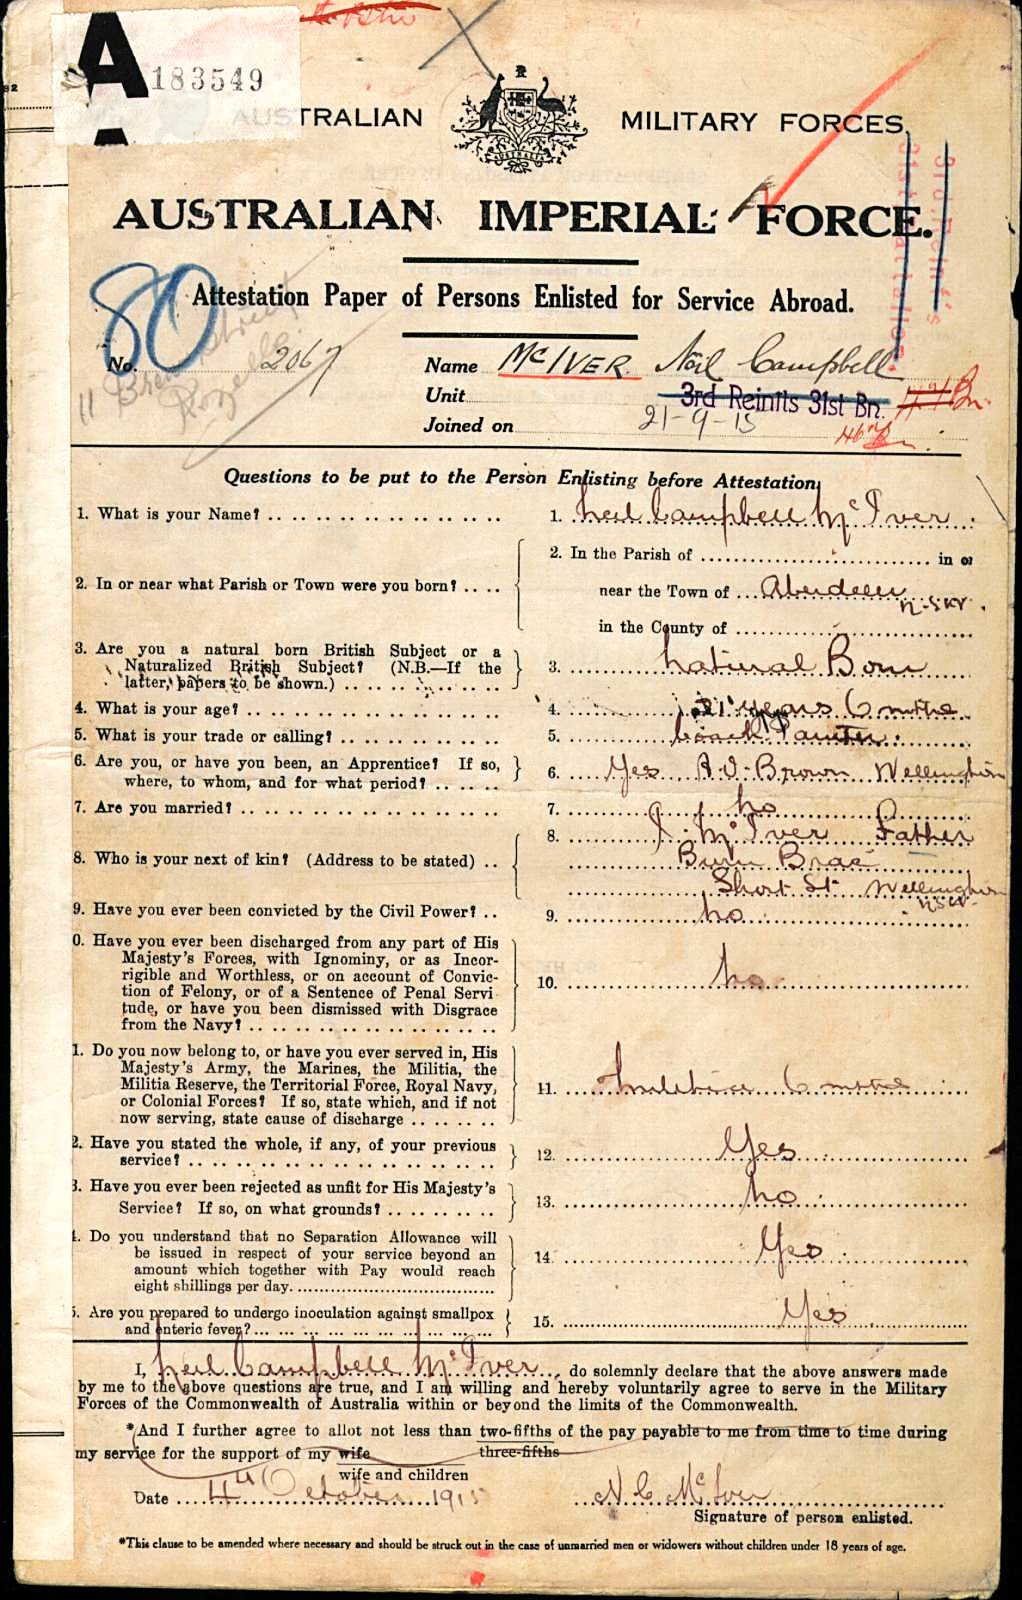 A 183549
AUSTRALIAN MILITARY FORCES.
AUSTRALIA
AUSTRALIAN IMPERIAL FORCE.
31st Battalion.
80
Attestation Paper of Persons Enlisted for Service Abroad.
No. 2067
Name McIVER. Neil Campbell
Unit 3rd Reinfts 31st Bn.
Joined on 21-9-15
Questions to be put to the Person Enlisting before Attestation.
1. What is your Name? 1. Neil Campbell McIver
2. In or near what Parish or Town were you born? 2. In the Parish of in or
near the Town of Aberdeen N.S.W.
in the County of
3. Are you a natural born British Subject or a
Naturalized British Subject? (N.B.—If the
latter, papers to be shown.) 3. Natural Born
4. What is your age? 4. 21 years 6 mnths
5. What is your trade or calling? 5. Coach Painter
6. Are you, or have you been, an Apprentice? If so,
where, to whom, and for what period? 6. Yes Brown Wellington
7. Are you married? 7. No
8. Who is your next of kin? (Address to be stated) 8. McIver Father
Burn Brae
Short St Wellington
NSW.
9. Have you ever been convicted by the Civil Power? 9. No
0. Have you ever been discharged from any part of His
Majesty's Forces, with Ignominy, or as Incor-
rigible and Worthless, or on account of Convic-
tion of Felony, or of a Sentence of Penal Servi
tude, or have you been dismissed with Disgrace
from the Navy? 10. No
1. Do you now belong to, or have you ever served in, His
Majesty's Army, the Marines, the Militia, the
Militia Reserve, the Territorial Force, Royal Navy,
or Colonial Forces? If so, state which, and if not
now serving, state cause of discharge 11. 6 mnths
2. Have you stated the whole, if any, of your previous
service? 12. Yes
3. Have you ever been rejected as unfit for His Majesty's
Service? If so, on what grounds? 13. No
4. Do you understand that no Separation Allowance will
be issued in respect of your service beyond an
amount which together with Pay would reach
eight shillings per day. 14. Yes
5. Are you prepared to undergo inoculation against smallpox
and enteric fever? 15. Yes
I, Neil Campbell McIver, do solemnly declare that the above answers made
by me to the above questions are true, and I am willing and hereby voluntarily agree to serve in the Military
Forces of the Commonwealth of Australia within or beyond the limits of the Commonwealth.
*And I further agree to allot not less than two-fifths of the pay payable to me from time to time during
my service for the support of my wife three-fifths
wife and children
Date 4th October 1915 N C McIver
Signature of person enlisted.
*This clause to be amended where necessary and should be struck out in the case of unmarried men or widowers without children under 18 years of age.